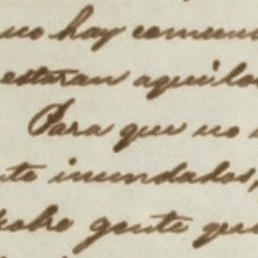 no hay comuni
estaran aqui lo
Para que no
te inundados,
pobre gente que